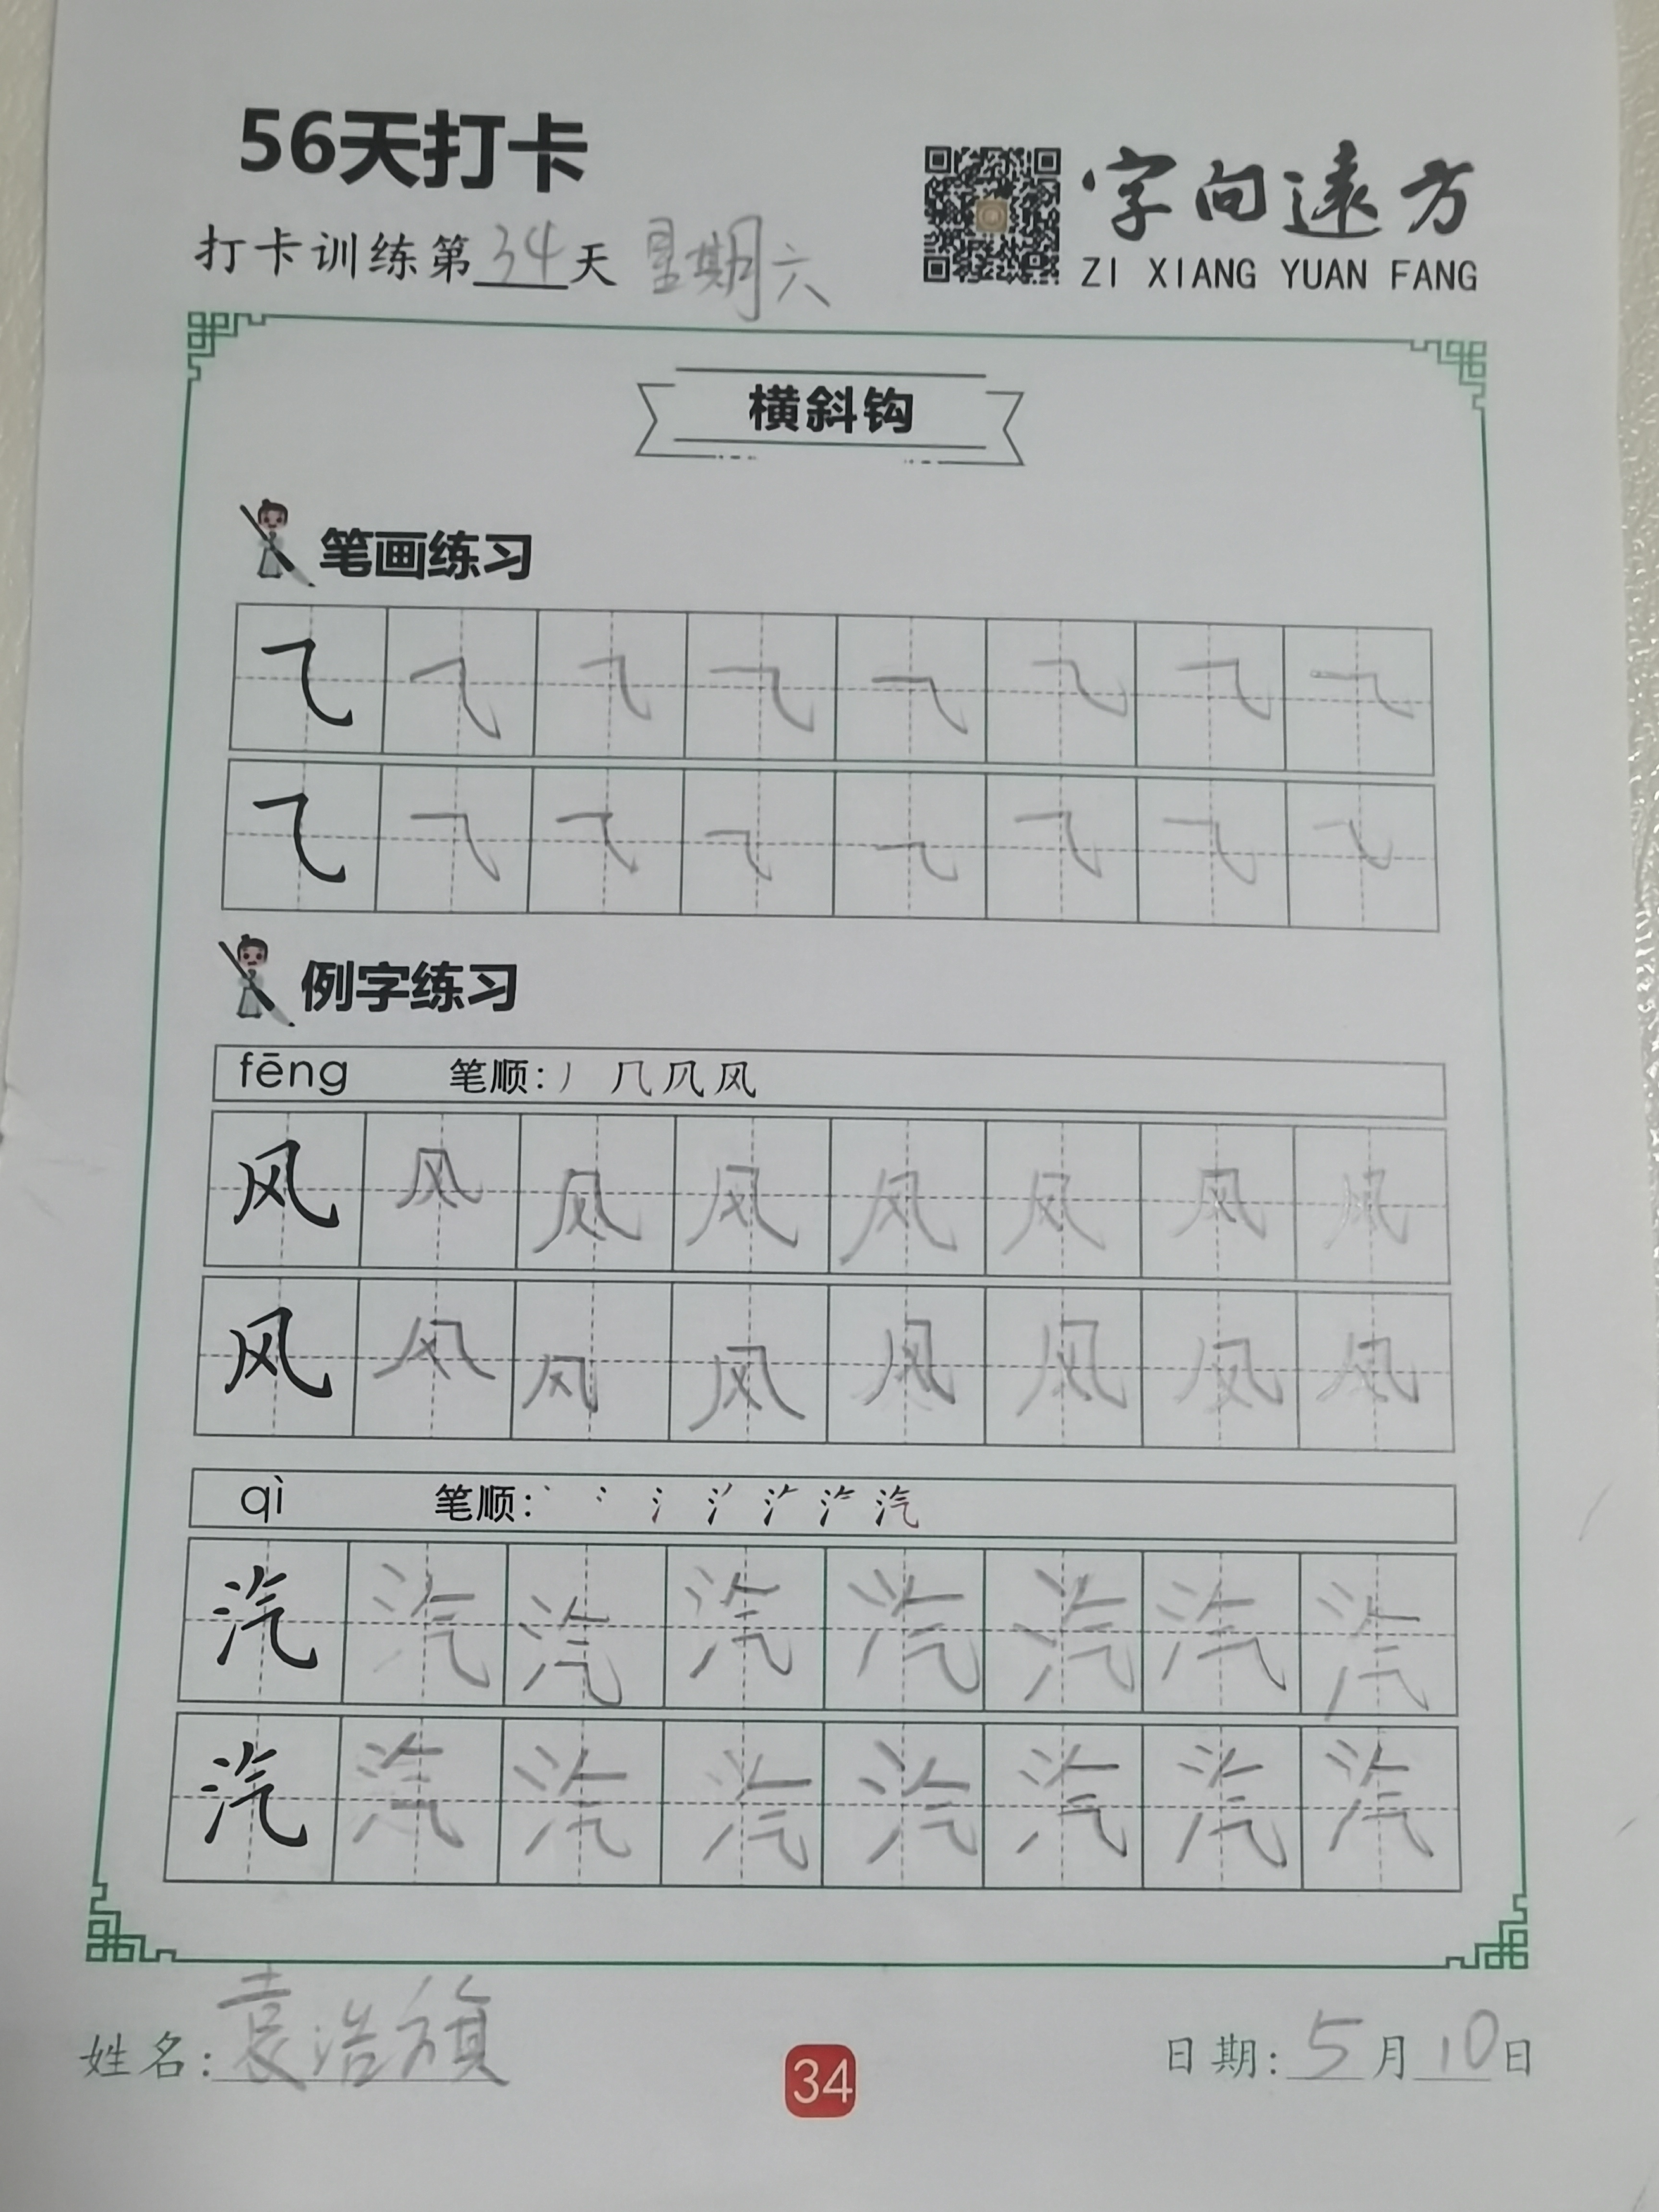 56天打卡
字向遠方
ZI XIANG YUAN FANG
打卡训练第34天 星期六
横斜钩
笔画练习
㇈ ㇈ ㇈ ㇈ ㇈ ㇈ ㇈ ㇈
㇈ ㇈ ㇈ ㇈ ㇈ ㇈ ㇈ ㇈
例字练习
fēng 笔顺: 丿 几 凡 风
风 风 风 风 风 风 风 风
风 风 风 风 风 风 风 风
qì 笔顺: 汽
汽 汽 汽 汽 汽 汽 汽 汽
汽 汽 汽 汽 汽 汽 汽 汽
姓名: 袁浩旗
34
日期: 5月10日